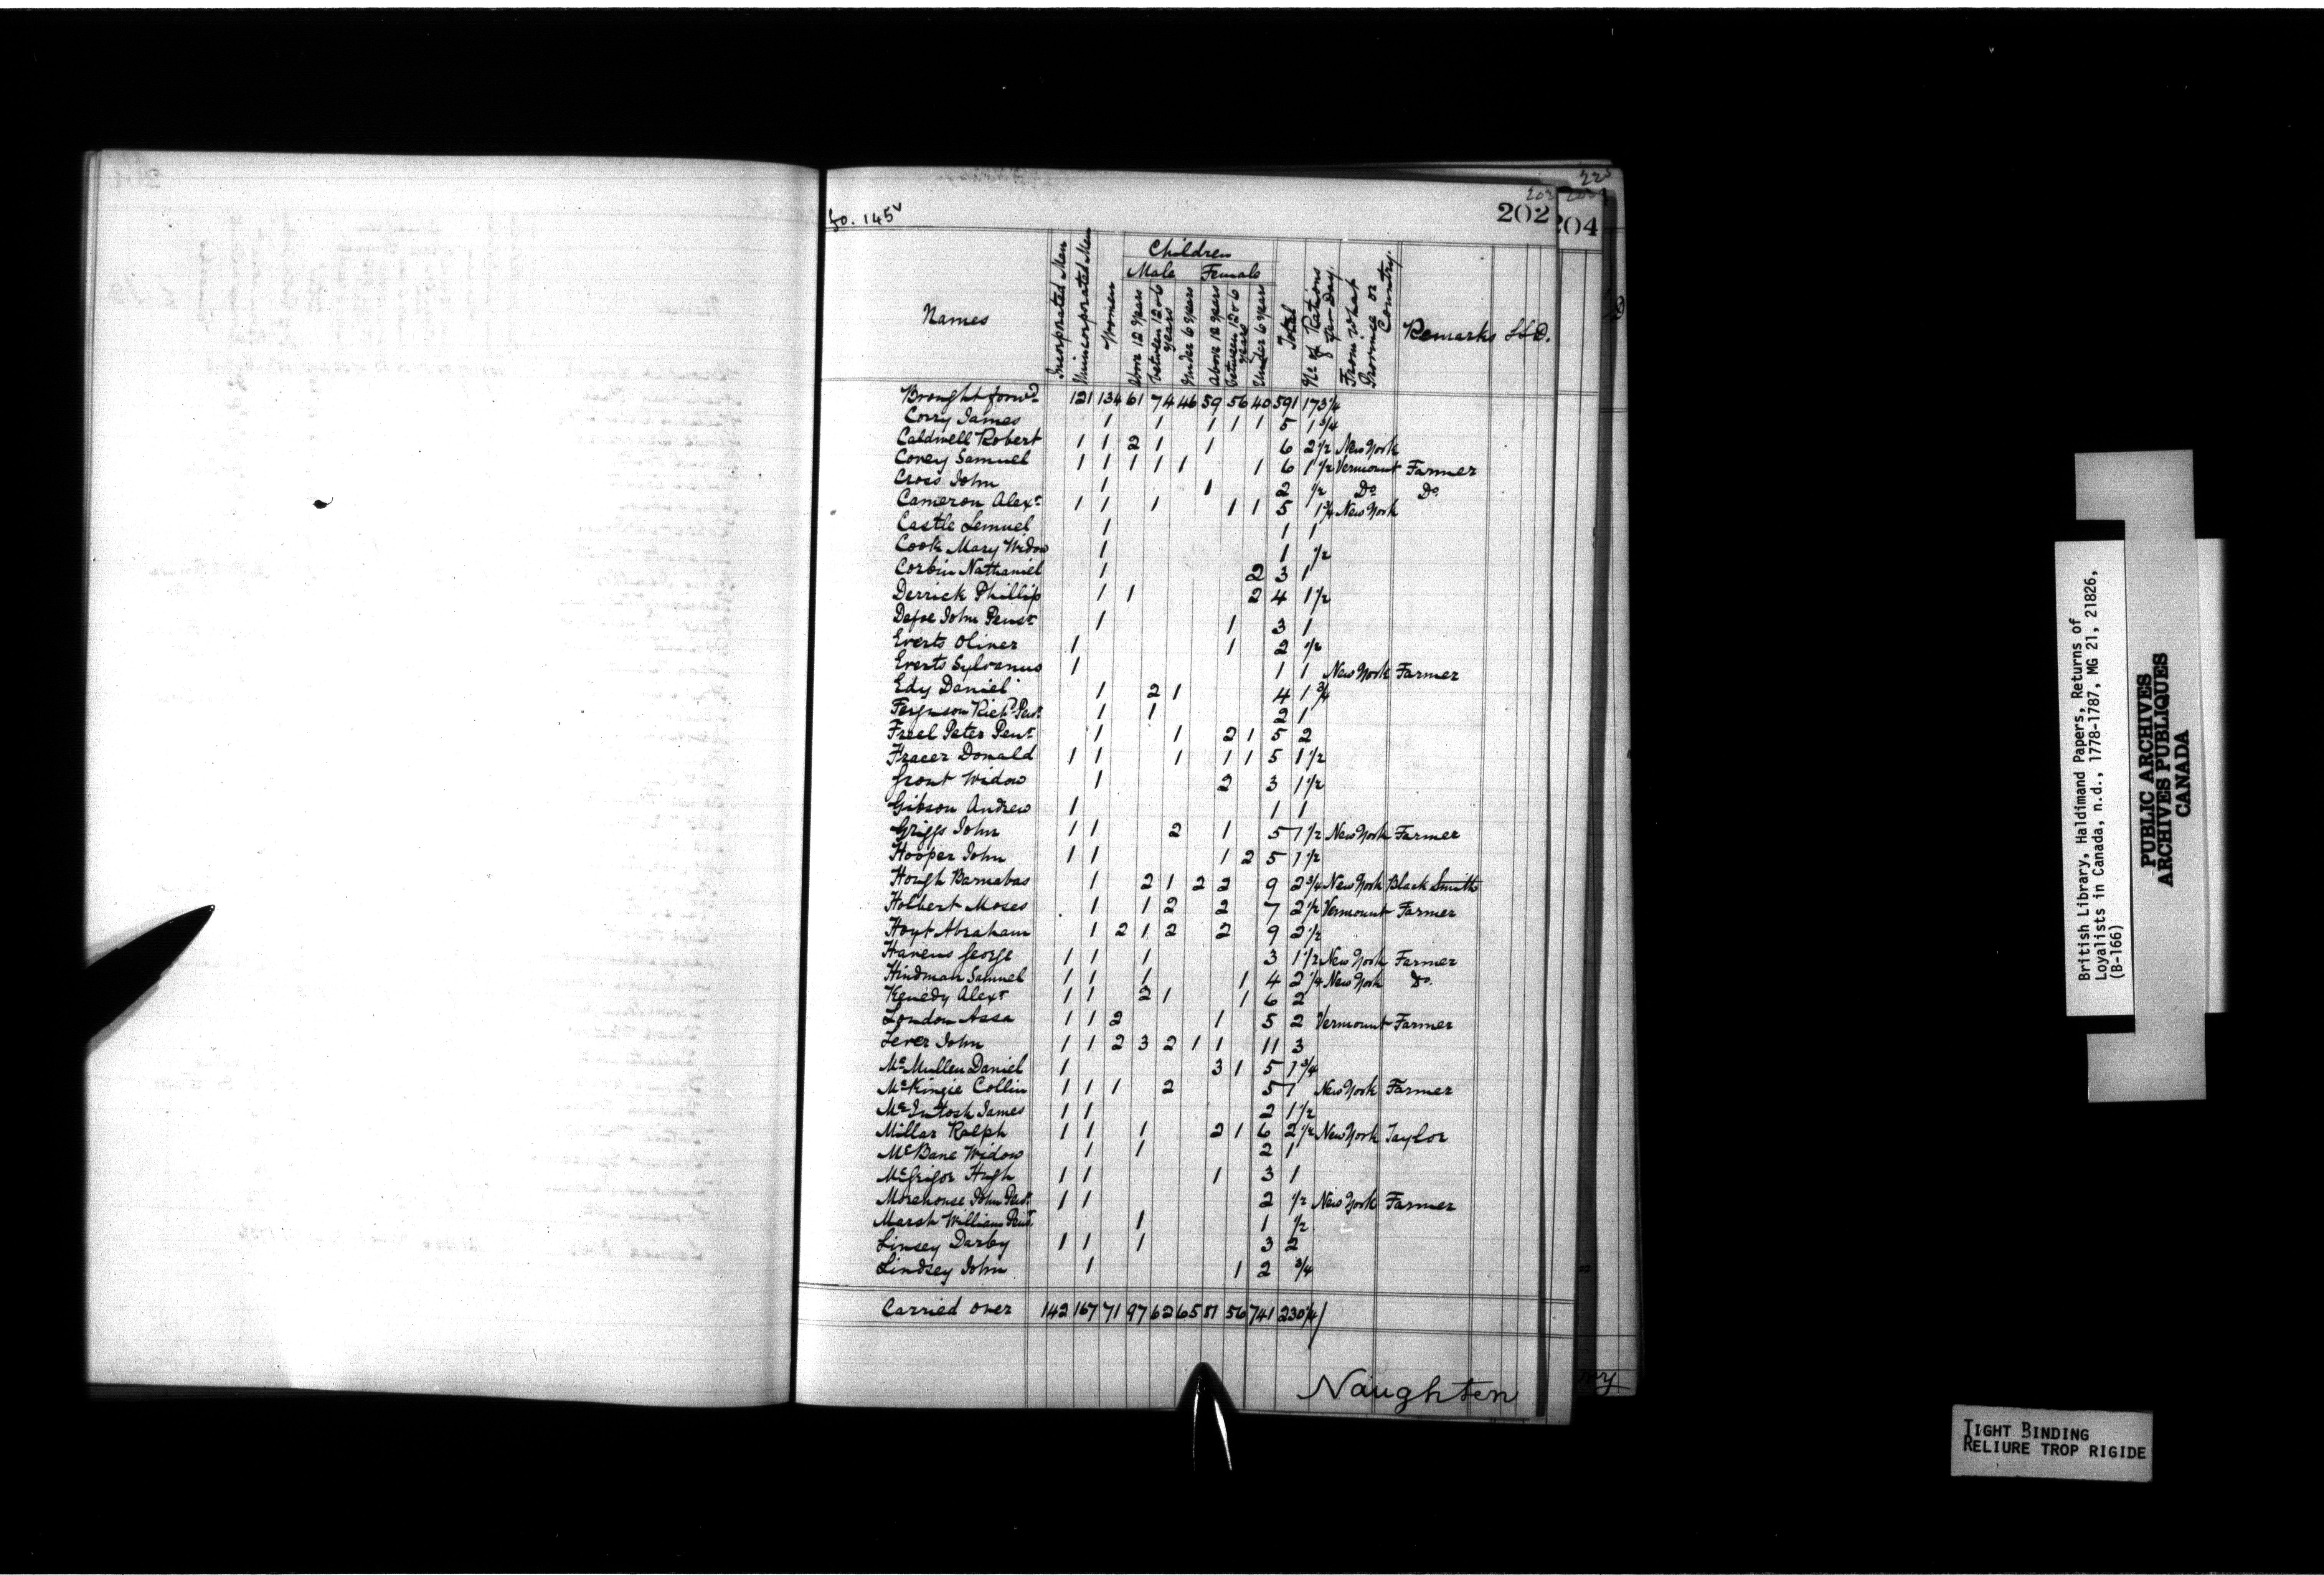 fo. 145v
202
204
Names
Incorporated Men
Unincorporated Men
Women
Children
Male Female
Above 12 years
between 12 & 6 years
Under 6 years
Above 12 years
between 12 & 6 years
Under 6 years
Total
No of Rations per Day.
From what Province or Country.
Remarks
Brought forwd 121 134 61 74 46 59 56 40 591 173 1/4
Corry James 1 1 1 1 1 5 1 3/4
Caldwell Robert 1 1 2 1 1 6 2 1/2 New York
Corey Samuel 1 1 1 1 1 1 6 1 1/2 Vermount Farmer
Cross John 1 1 2 1/2 Do Do
Cameron Alexr 1 1 1 1 1 5 1 3/4 New York
Castle Lemuel 1 1 1
Cook Mary Widow 1 1 1/2
Corbin Nathaniel 1 2 3 1
Derrick Phillip 1 1 2 4 1 1/2
Defoe John Pensr 1 1 3 1
Everts Oliver 1 1 2 1/2
Everts Sylvanus 1 1 1 New York Farmer
Edy Daniel 1 2 1 4 1 3/4
Ferguson Richd Penr 1 1 2 1
Freel Peter Penr 1 1 2 1 5 2
Fracer Donald 1 1 1 1 1 5 1 1/2
Grout Widow 1 2 3 1 1/2
Gibson Andrew 1 1 1
Griggs John 1 1 2 1 5 1 1/2 New York Farmer
Hooper John 1 1 1 2 5 1 1/2
Hough Barnabas 1 2 1 2 2 9 2 3/4 New York Black Smith
Holbert Moses 1 1 2 2 7 2 1/2 Vermount Farmer
Hoyt Abraham 1 2 1 2 2 9 2 1/2
Havens George 1 1 1 3 1 1/2 New York Farmer
Hindman Samuel 1 1 1 1 4 2 1/4 New York Do.
Kenedy Alexr 1 1 2 1 1 6 2
London Assa 1 1 2 1 5 2 Vermount Farmer
Lever John 1 1 2 3 2 1 1 11 3
McMullen Daniel 1 3 1 5 1 3/4
McKinzie Collin 1 1 1 2 5 1 New York Farmer
McIntosh James 1 1 2 1 1/2
Millar Ralph 1 1 1 2 1 6 2 1/2 New York Taylor
McBane Widow 1 1 2 1
McGrigor Hugh 1 1 1 3 1
Morehouse John Penr 1 1 2 1/2 New York Farmer
Marsh William Penr 1 1 1/2
Linsey Darby 1 1 1 3 2
Lindsey John 1 1 2 3/4
Carried over 142 167 71 97 62 65 81 56 741 230 1/4
Naughten
British Library, Haldimand Papers, Returns of
Loyalists in Canada, n.d., 1778-1787, MG 21, 21826,
(B-166)
PUBLIC ARCHIVES
ARCHIVES PUBLIQUES
CANADA
TIGHT BINDING
RELIURE TROP RIGIDE